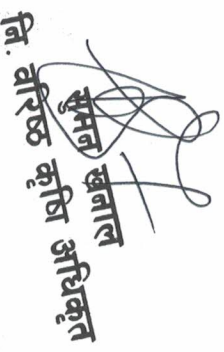 सुमन खनाल
नि. वरिष्ठ कृषि अधिकृत